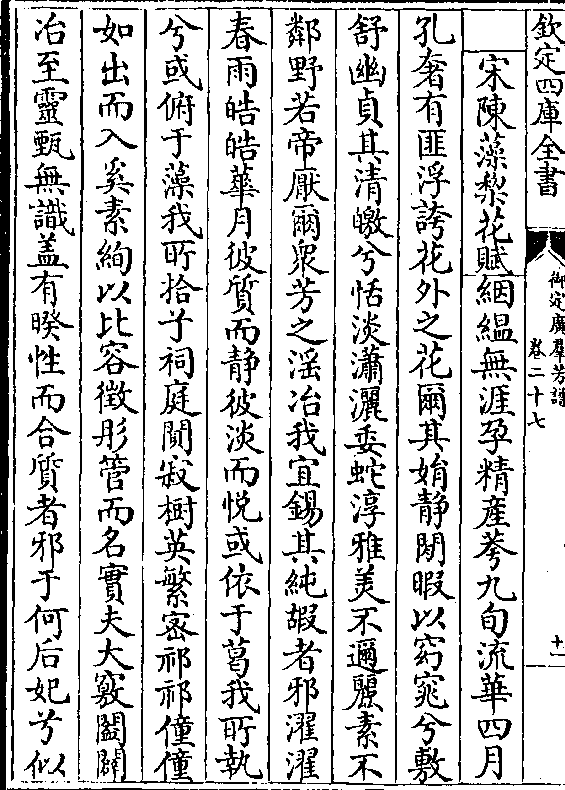 欽定四庫全書
御定廣羣芳譜
卷二十七
十一
宋陳藻梨花賦絪縕無涯孕精產萼九旬流華四月
孔奢有匪浮誇花外之花爾其娟静閒暇以窈窕兮敷
舒幽貞其清皦兮恬淡瀟灑委蛇淳雅美不邇麗素不
鄰野若帝厭爾衆芳之滛冶我宜錫其純嘏者邪濯濯
春雨皓皓華月彼質而静彼淡而悦或依于葛我所執
兮或俯于藻我所拾于祠庭閒寂樹英繁宻祁祁僮僮
如出而入奚素絢以比容徴彤管而名實夫大竅闔闢
冶至靈甄無識盖有暌性而合質者邪于何后妃兮似